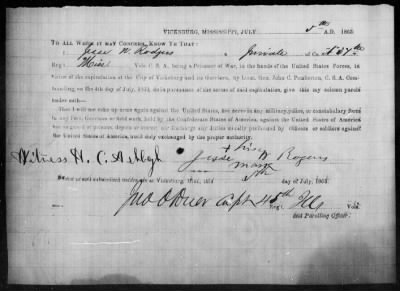 VICKSBURG, MISSISSIPPI, JULY 8th A.D. 1863.
TO ALL WHOM IT MAY CONCERN, KNOW YE THAT:
I, Jesse W. Rodgers a Private of Co. 37th
Reg't Miss Vols. C. S. A., being a Prisoner of War, in the hands of the United States Forces, in
virtue of the capitulation of the City of Vicksburg and its Garrison, by Lieut. Gen. John C. Pemberton, C. S. A., Com-
manding, on the 4th day of July, 1863, do in pursuance of the terms of said capitulation, give this my solemn parole
under oath—
That I will not take up arms again against the United States, nor serve in any military, police, or constabulary force
in any Fort, Garrison or field work, held by the Confederate States of America, against the United States of America
nor as guard of prisons, depots or stores, nor discharge any duties usually performed by officers or soldiers against
the United States of America, until duly exchanged by the proper authority.
Witness H. C. Ashleyh Jesse his + mark W Rogers
Sworn to and subscribed before me at Vicksburg, Miss., this 8th day of July, 1863.
Capt 45th Reg't Ills Vols.
And Paroling Officer.